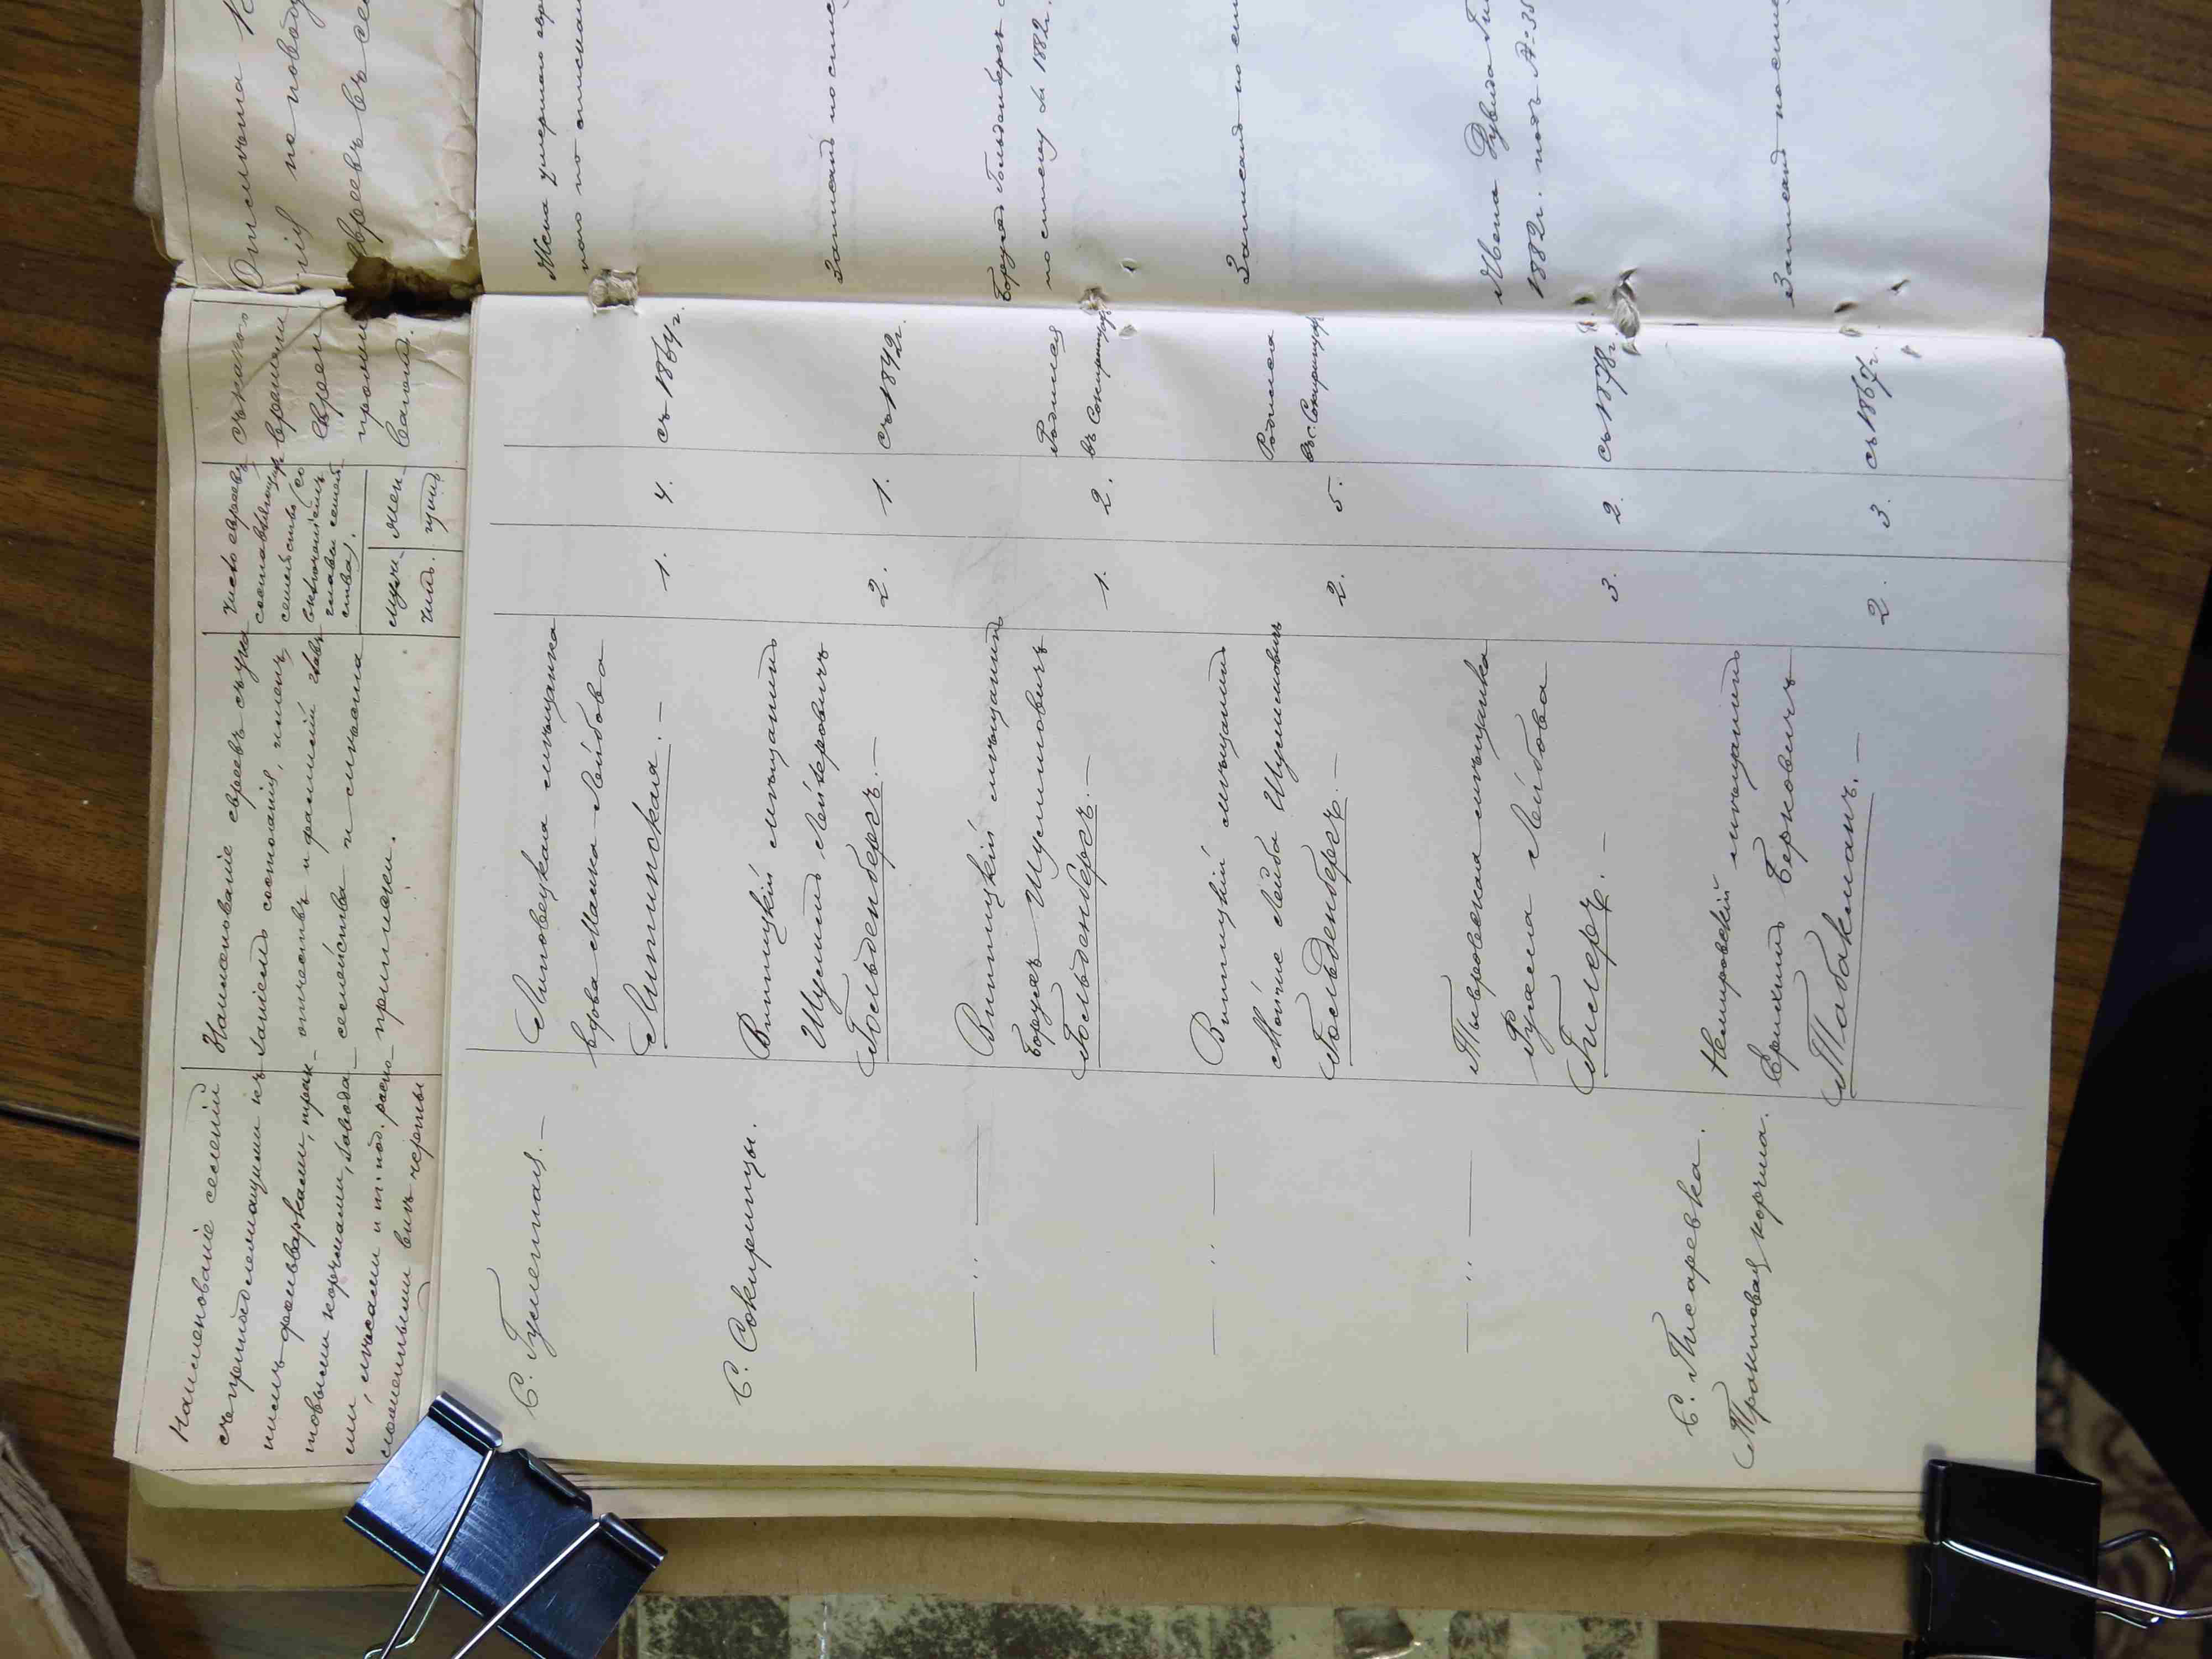 Наименованіе селеній
съ принадлежащими къ
нимъ фольварками, трак-
товыми корчмами, завода-
ми, лѣсами и т. под. распо-
ложенными внѣ черты
Наименованіе евреевъ съ ука-
заніемъ состоянія, именъ,
отчествъ и фамилій главъ
семейства и мѣста
приписки.
Число евреевъ
составляющихъ
семейство (со
включеніемъ
главы семей
ства).
мущи-
нъ.
жен-
щинъ
съ какого
времени
еврей
прожи
ваетъ.
Отмѣтка
по поводу
евреевъ въ се
С. Гуменная. —
Липовецкая мѣщанка
вдова Малка Лейбова
Липинская. —
1.
4.
съ 1864 г.
Жена умершаго евр
по спискам
С. Сокиринцы.
Винницкій мѣщанинъ
Шулимъ Лейзеровичъ
Гольденбергъ. —
2.
1.
съ 1842 г.
Записанъ по спис
— " —
Винницкій мѣщанинъ
Борухъ Шулимовичъ
Гольденбергъ. —
1.
2.
Родился
въ Сокиринцахъ
Борухъ Гольденбергъ
по списку за 1882 г.
— " —
Винницкій мѣщанинъ
Мойше Лейба Шулимовичъ
Гольденбергъ. —
2.
5.
Родился
въ с. Сокиринцахъ
Записанъ по сп
— " —
Тывровская мѣщанка
Рухля Лейбова
Гислеръ. —
3.
2.
съ 1878 г.
Жена Дувида Гис
1882 г. подъ № 35
С. Писаревка.
Трактовая корчма.
Немировскій мѣщанинъ
Срихимъ Берковичъ
Табакманъ. —
2.
3.
съ 1867 г.
Записанъ по спис